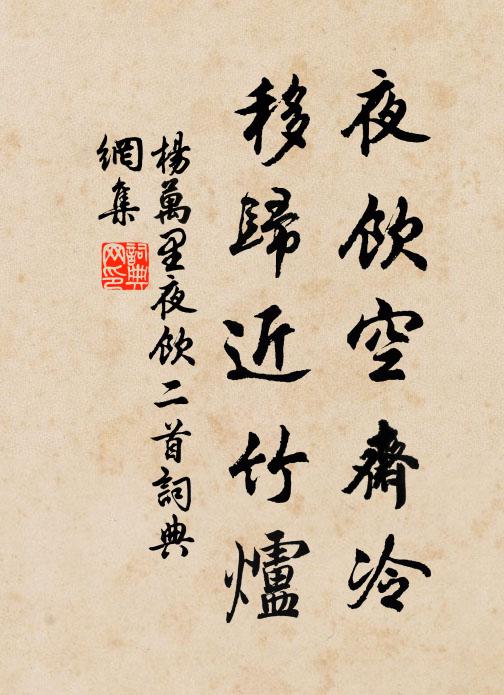 夜飲空齋冷
移歸近竹爐
楊萬里夜飲二首詞典
網集
詞典網印